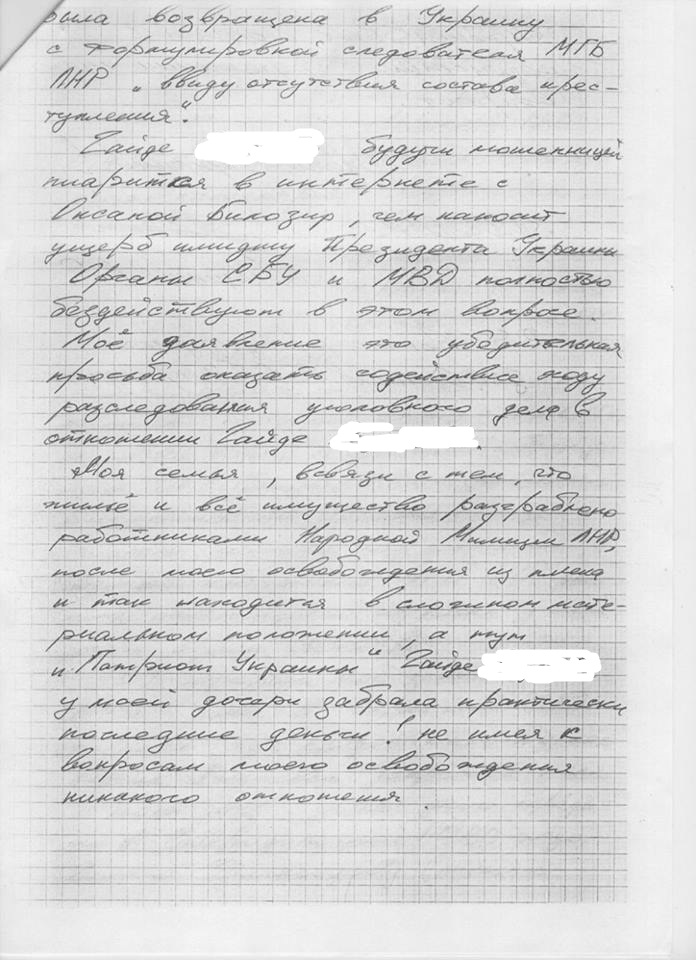 была возвращена в Украину
с формулировкой следователя МГБ
ЛНР „ввиду отсутствия состава прес-
тупления".
Гайде будучи мошенницей
пиарится в интернете с
Оксаной Билозир, чем наносит
ущерб имиджу Президента Украины
Органы СБУ и МВД полностью
бездействуют в этом вопросе.
Моё заявление это убедительная
просьба оказать содействие ходу
разследования уголовного дела в
отношении Гайде .
Моя семья, всвязи с тем, что
жильё и всё имущество разграблено
работниками Народной Милиции ЛНР,
после моего освобождения из плена
и так находится в сложном мате-
риальном положении, а тут
и „Патриот Украины" Гайде
у моей дочери забрала практически
последние деньги! не имея к
вопросам моего освобождения
никакого отношения.